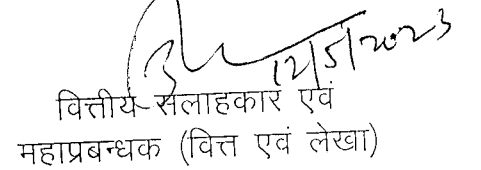 12/5/2023
वित्तीय सलाहकार एवं
महाप्रबन्धक (वित्त एवं लेखा)